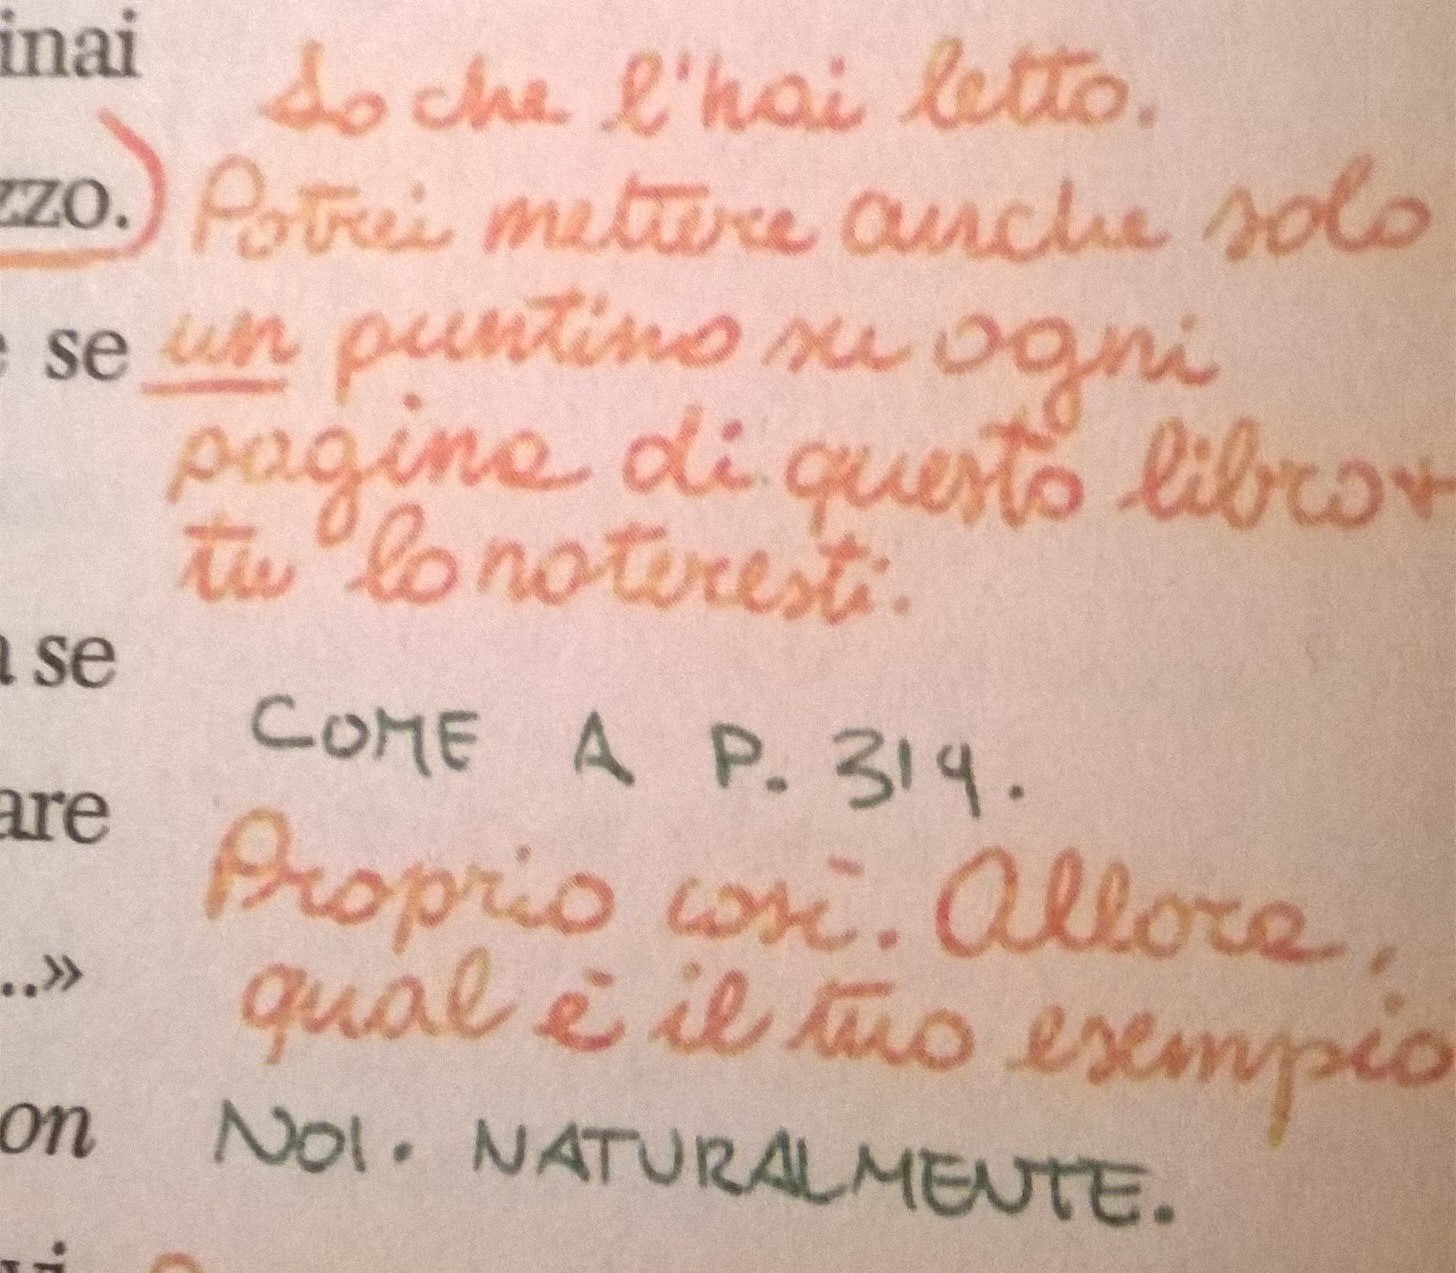 inai
So che l'hai letto.
zzo.
Potrei mettere anche solo
se
un puntino su ogni
pagina di questo libro e
tu lo noteresti.
se
COME A P. 314.
are
Proprio così. Allora,
..»
qual è il tuo esempio
on
NOI. NATURALMENTE.